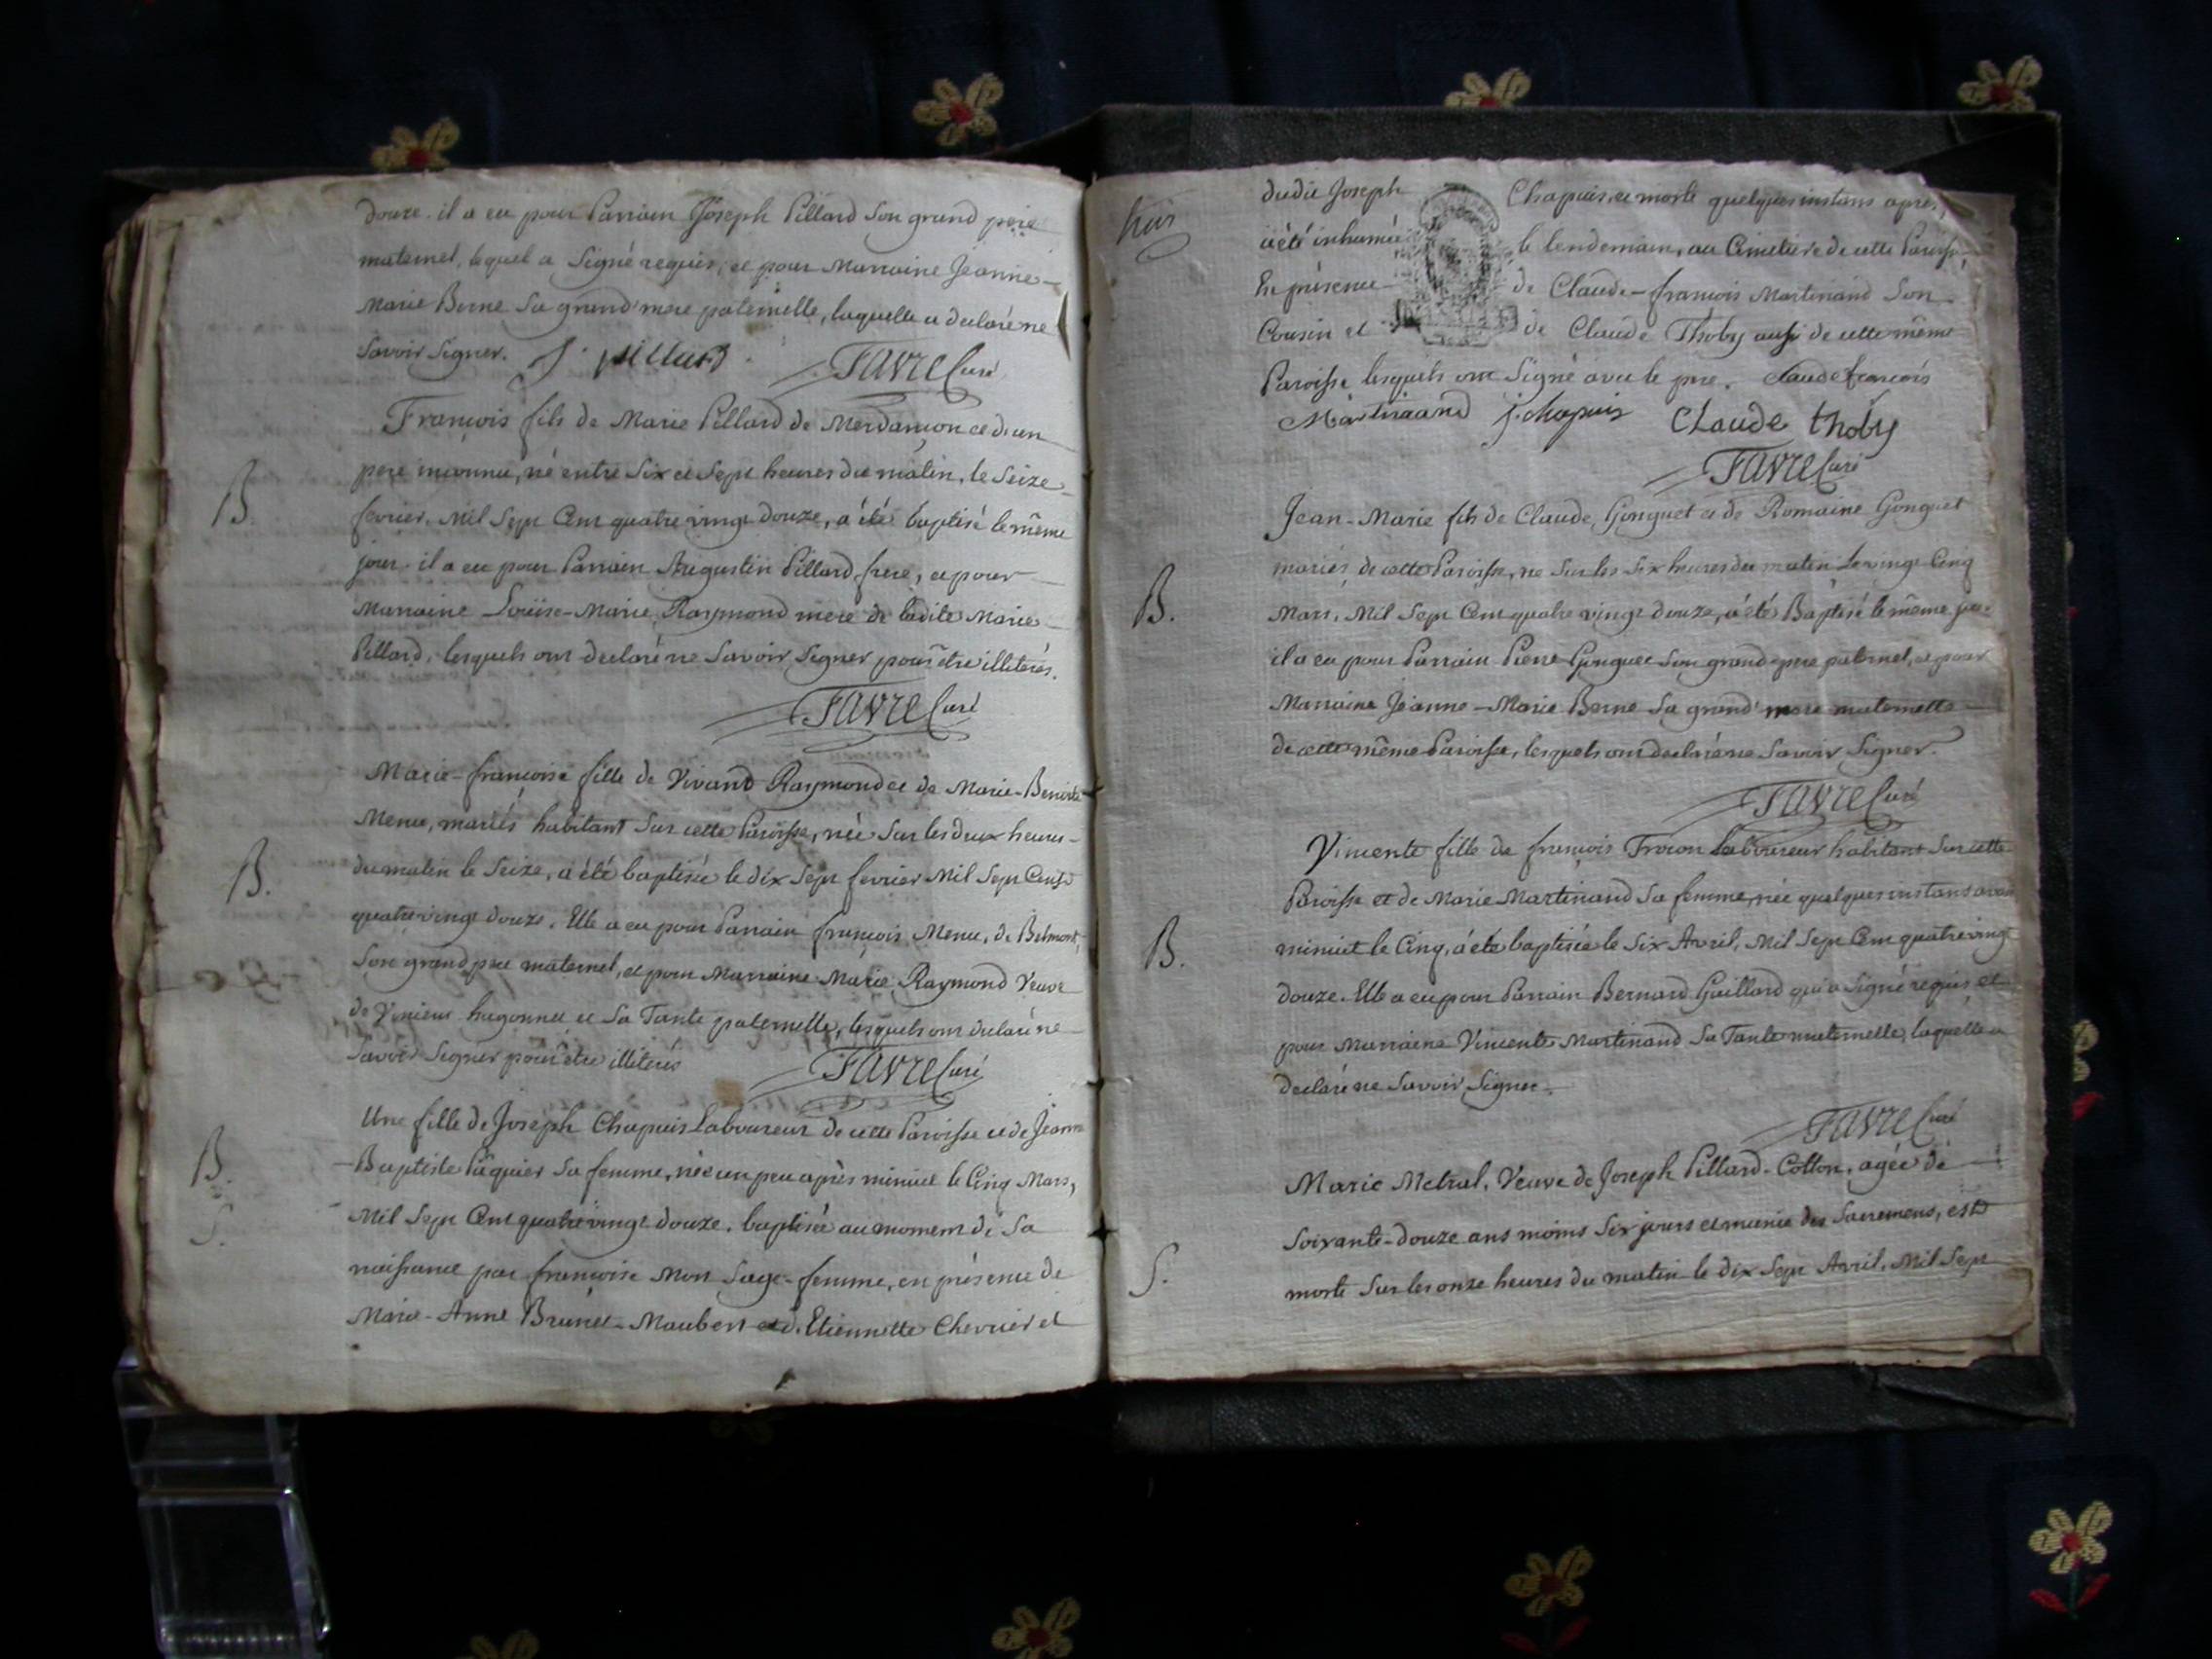 douze. il a eu pour Parrain Joseph Pillard Son grand pere
maternel, lequel a Signé requis, et pour Marraine Jeanne-
Marie Berne Sa grand'mere paternelle, laquelle a declaré ne
Savoir Signer. J. pillard FAVRE Curé
François fils de Marie Pillard de Merdançon et d'un
pere inconnu, né entre Six et Sept heures du matin, le Seize
B. fevrier, Mil Sept Cent quatre vingt douze, a été baptisé le même
jour. il a eu pour Parrain Augustin Pillard frere, et pour
Marraine Loüise-Marie Raymond mere de ladite Marie
Pillard, lesquels ont declaré ne Savoir Signer pour être illiterés.
FAVRE Curé
Marie-françoise fille de Vivand Raymond et de Marie-Benoite
Menu, mariés habitant Sur cette Paroisse, née Sur les deux heures
B. du matin le Seize, a été baptisée le dix Sept fevrier Mil Sept Cent
quatre vingt douze. Elle a eu pour Parrain françois Menu, de Belmont,
Son grand pere maternel, et pour Marraine Marie Raymond Veuve
de Vincent hugonnet et Sa Tante paternelle, lesquels ont declaré ne
Savoir Signer pour être illiterés FAVRE Curé
Une fille de Joseph Chapuis Laboureur de cette Paroisse et de Jeanne
B. -Baptiste Pâquier Sa femme, née un peu après minuit le Cinq Mars,
S. Mil Sept Cent quatre vingt douze. baptisée au moment de Sa
naissance par françoise Mon Sage-femme, en présence de
Marie-Anne Brunet-Maubert et d'Etiennette Chevrier et
dudit Joseph Chapuis, et morte quelques instans après,
a été inhumée le lendemain, au Cimetiere de cette Paroisse,
En présence de Claude-françois Martinand Son
Cousin et de Claude Thoby aussi de cette même
Paroisse lesquels ont Signé avec le pere. Claude françois
Martinand j. chapuis Claude thoby
FAVRE Curé
Jean-Marie fils de Claude Gonguet et de Romaine Gonguet
mariés de cette Paroisse, né Sur les Six heures du matin le vingt Cinq
B. Mars, Mil Sept Cent quatre vingt douze, a été Baptisé le même jour
il a eu pour Parrain Pierre Gonguet Son grand-pere paternel, et pour
Marraine Jeanne-Marie Berne Sa grand'mere maternelle
de cette même Paroisse, lesquels ont declaré ne Savoir Signer.
FAVRE Curé
Vincente fille de françois Laboureur habitant Sur cette
Paroisse et de Marie Martinand Sa femme, née quelques instans avant
B. minuit le Cinq, a été baptisée le Six Avril, Mil Sept Cent quatre vingt
douze. Elle a eu pour Parrain Bernard Gaillard qui a Signé requis, et
pour Marraine Vincente Martinand Sa Tante maternelle, laquelle a
declaré ne Savoir Signer.
FAVRE Curé
Marie Metral, Veuve de Joseph Pillard-Cotton, agée de
Soixante-douze ans moins Six jours et munie des Sacremens, est
S. morte Sur les onze heures du matin le dix Sept Avril, Mil Sept